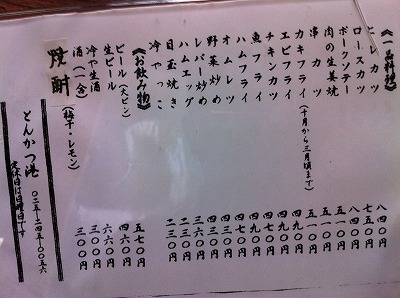 《一品料理》
ヒレカツ 八四〇円
ロースカツ 七五〇円
ポークソテー 八四〇円
肉の生姜焼 五一〇円
串カツ 五一〇円
カキフライ(十月から三月頃まで) 五一〇円
エビフライ 四九〇円
チキンカツ 四九〇円
魚フライ 四九〇円
ハムフライ 四七〇円
オムレツ 四七〇円
野菜炒め 四三〇円
レバー炒め 四三〇円
ハムエッグ 三六〇円
目玉焼き 二三〇円
冷やっこ 二三〇円
《お飲み物》
ビール(大ビン) 五七〇円
生ビール 四六〇円
冷や生酒 六六〇円
酒(一合) 三〇〇円
焼酎(梅干・レモン) 三〇〇円
とんかつ港 〇二五-二四五-〇〇五六
定休日は日曜日です